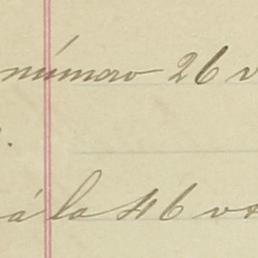 número 26 v
á la 46 vo